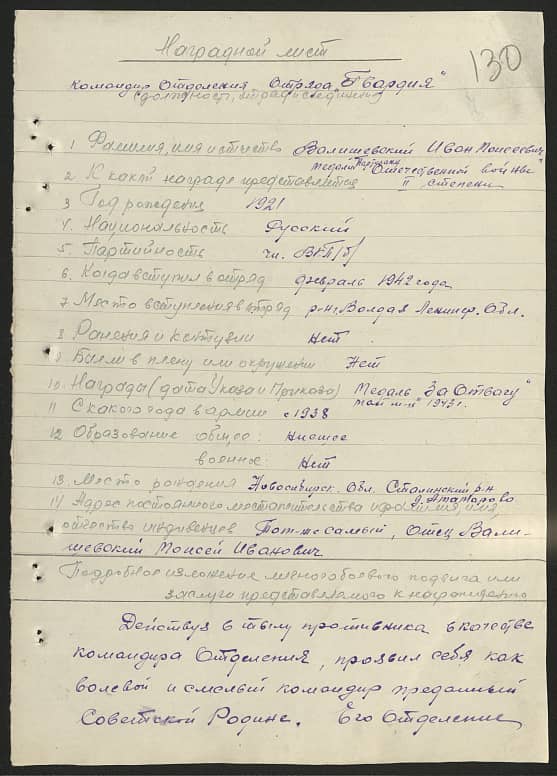 130
Наградной лист
Командир Отделения Отряда "Гвардия"
(должность, отряд и соединения)
1 Фамилия, имя и отчество Валишевский Иван Моисеевич
Медали "Партизану
2. К какой награде представляется Отечественной войны"
II степени
3 Год рождения 1921
4. Национальность Русский
5. Партийность чл. ВКП/б/
6. Когда вступил в отряд февраль 1942 года
7. Место вступления в отряд р-н г. Волдая Ленингр. Обл.
8 Ранения и контузии Нет
9 Был ли в плену или окружении Нет
10. Награда (дата Указа и Приказа) Медаль "За Отвагу"
май м-ц 1942 г.
11 С какого года в армии с 1938
12 Образование общее: низшее
военное: Нет
13. Место рождения Новосибирск. Обл. Сталинский р-н
д. Атаманово
14 Адрес постоянного местожительства и фамилия, имя,
отчество Тот-же самый, Отец Вали-
шевский Моисей Иванович
Подробное изложение личного боевого подвига или
заслуги представляемого к награждению
Действуя в тылу противника в качестве
командира Отделения, проявил себя как
волевой и смелый командир преданный
Советской Родине. Его Отделение